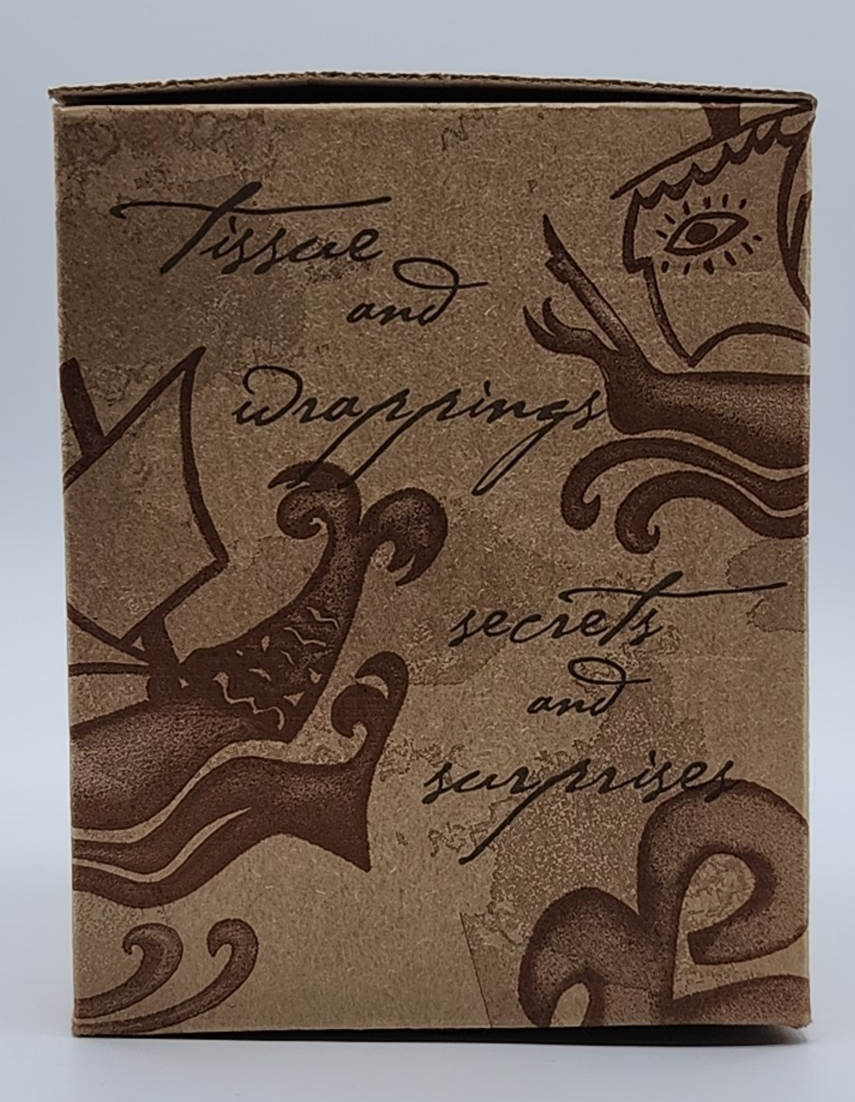 Tissue
and
wrappings
secrets
and
surprises